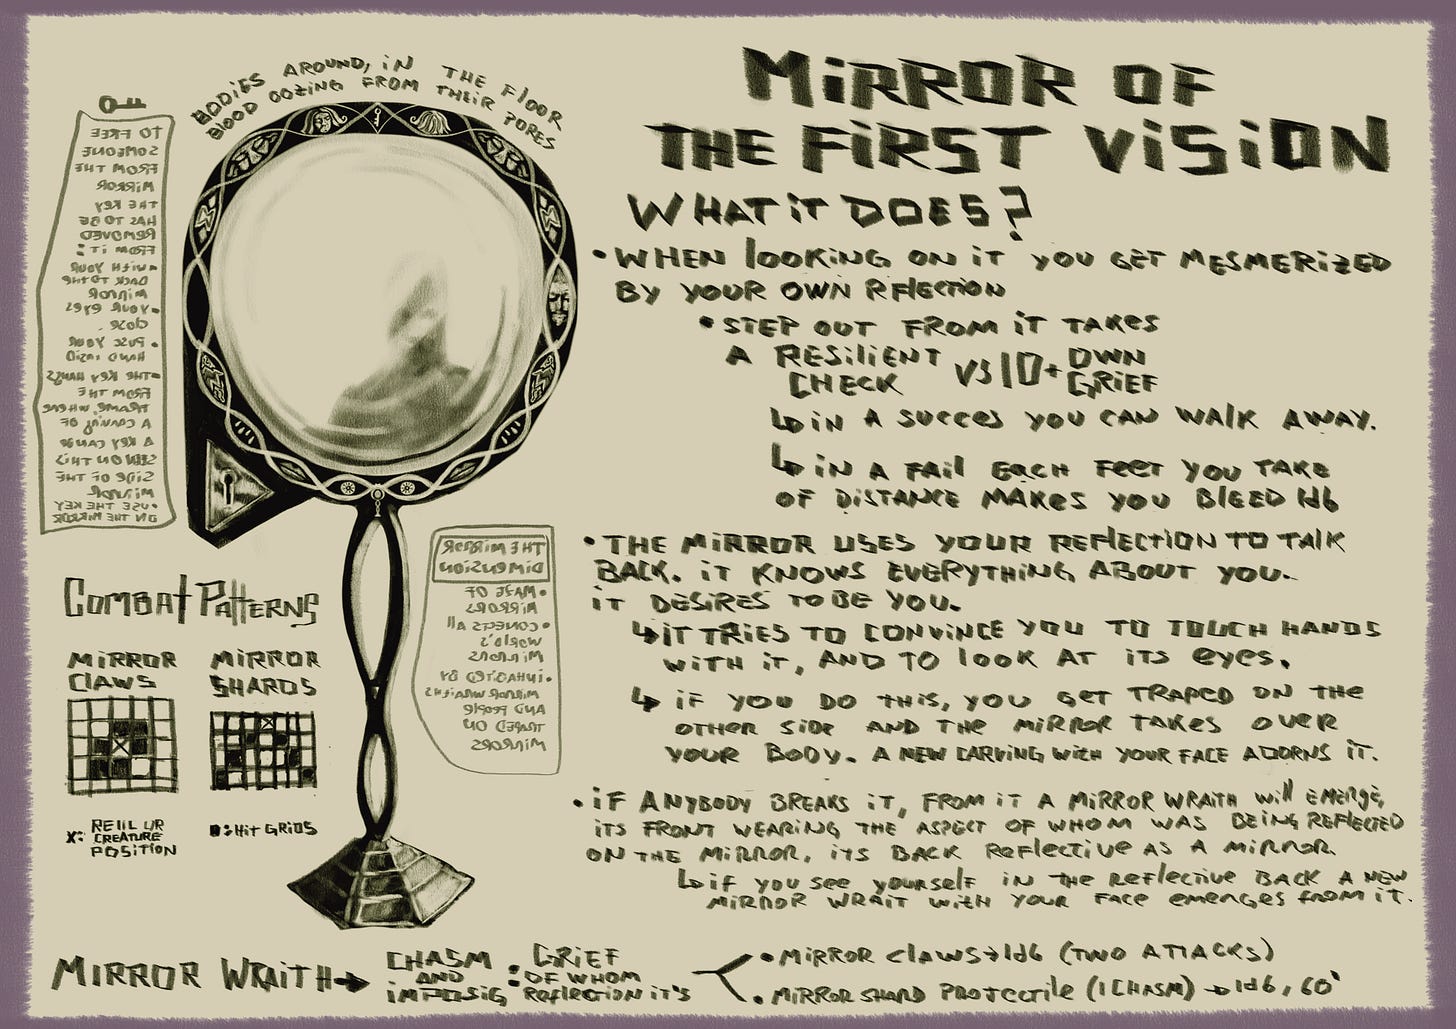 BODIES AROUND, IN THE FLOOR
BLOOD OOZING FROM THEIR PORES
MIRROR OF
THE FIRST VISION
WHAT IT DOES?
• WHEN LOOKING ON IT YOU GET MESMERIZED
BY YOUR OWN RFLECTION
• STEP OUT FROM IT TAKES
A RESILIENT VS 10+ OWN
CHECK GRIEF
↳ IN A SUCCES YOU CAN WALK AWAY.
↳ IN A FAIL EACH FEET YOU TAKE
OF DISTANCE MAKES YOU BLEED 1d6
• THE MIRROR USES YOUR REFLECTION TO TALK
BACK. IT KNOWS EVERYTHING ABOUT YOU.
IT DESIRES TO BE YOU.
↳ IT TRIES TO CONVINCE YOU TO TOUCH HANDS
WITH IT, AND TO LOOK AT ITS EYES.
↳ IF YOU DO THIS, YOU GET TRAPED ON THE
OTHER SIDE AND THE MIRROR TAKES OVER
YOUR BODY. A NEW CARVING WITH YOUR FACE ADORNS IT.
• IF ANYBODY BREAKS IT, FROM IT A MIRROR WRAITH WILL EMERGE,
ITS FRONT WEARING THE ASPECT OF WHOM WAS BEING REFLECTED
ON THE MIRROR, ITS BACK REFLECTIVE AS A MIRROR.
↳ IF YOU SEE YOURSELF IN THE REFLECTIVE BACK A NEW
MIRROR WRAIT WITH YOUR FACE EMERGES FROM IT.
TO FREE
SOMEONE
FROM THE
MIRROR
THE KEY
HAS TO BE
REMOVED
FROM IT:
• WITH YOUR
BACK TO THE
MIRROR
• YOUR EYES
CLOSE.
• PUSE YOUR
HAND INSID
• THE KEY HANGS
FROM THE
FRAME, WHERE
A CARVING OF
A KEY CAN BE
SEEN ON THIS
SIDE OF THE
MIRROR
• USE THE KEY
ON THE MIRROR
THE MIRROR
DIMENSION
• MAZE OF
MIRRORS
• CONECTS ALL
WORLD'S
MIRRORS
• INHABITED BY
MIRROR WRAITHS
AND PEOPLE
TRAPED ON
MIRRORS
COMBAT PATTERNS
MIRROR
CLAWS
MIRROR
SHARDS
X: CREATURE
POSITION
■: HIT GRIDS
MIRROR WRAITH → CHASM AND IMPOSIG : GRIEF OF WHOM REFLECTION IT'S
• MIRROR CLAWS → 1d6 (TWO ATTACKS)
• MIRROR SHARD PROTECTILE (1 CHASM) → 1d6, 60'